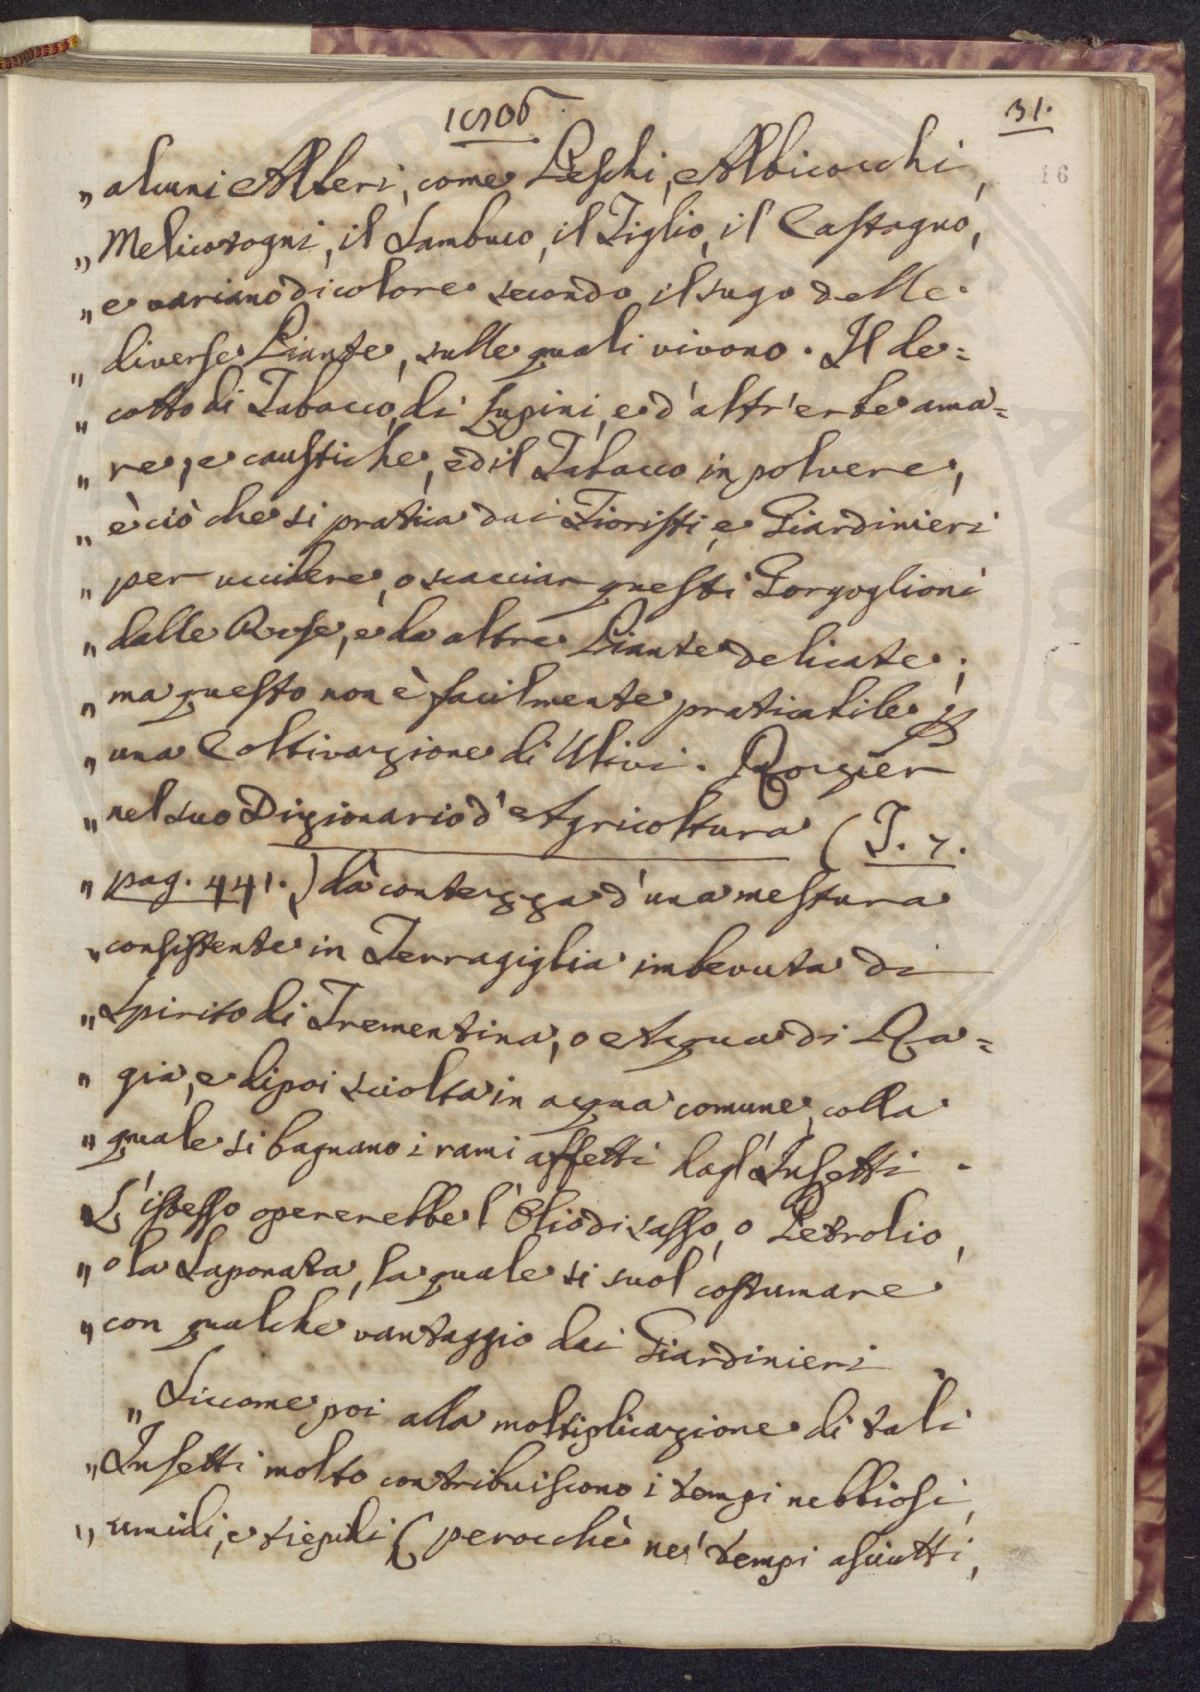 1806.
31.
16
„ alcuni Alberi, come Peschi, Albicocchi,
„ Melicotogni, il Sambuco, il Tiglio, il Castagno,
„ e variano di colore secondo il sugo delle
„ diverse Piante, sulle quali vivono. Il de=
„ cotto di Tabacco, di Lupini, e d'altr'erbe ama=
„ re, e caustiche, ed il Tabacco in polvere,
„ è ciò che si pratica dai Fioristi, e Giardinieri
„ per uccidere, o scacciar questi Gorgoglioni
„ dalle Rose, e da altre Piante delicate;
„ ma questo non è facilmente praticabile p
„ una Coltivazione di Ulivi. Rozier
„ nel suo Dizionario d'Agricoltura (T. 7.
„ pag. 441.) dà contezza d'una mestura
„ consistente in Terragiglia imbevuta di
„ Spirito di Trementina, o Acqua di Ra=
„ gia, e dipoi sciolta in acqua comune, colla
„ quale si bagnano i rami affetti dagl'Insetti.
„ L'istesso opererebbe l'Olio di sasso, o Petrolio,
„ o la Saponata, la quale si suol costumare
„ con qualche vantaggio dai Giardinieri.
„ Siccome poi alla moltiplicazione di tali
„ Insetti molto contribuiscono i tempi nebbiosi,
„ umidi, e tiepidi (perocchè ne' tempi asciutti,